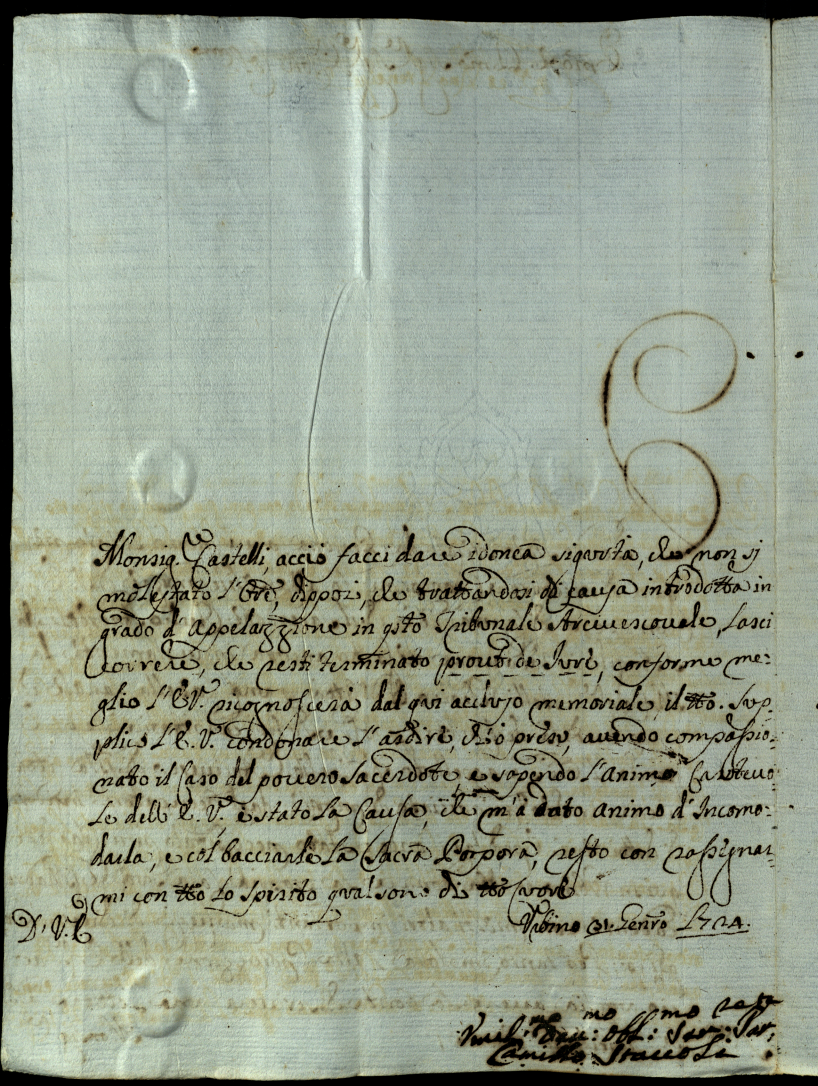 Monsig.re Castelli, acciò facci dare idonea sigurtà, che non si
molestato l'Ore, dippoi, che trattandosi di causa introdotta in
grado d'appelazzione in qsto Tribunale Arcivescovale, lasci
correre, che resti terminato prout de Iure, conforme me:
glio l'E.V. ricognoscerà dal qui acchiuso memoriale, il tto. Sup
plico l'E.V. condonare l'ardire, ch'ò preso, avendo compassio:
nato il Caso del povero Sacerdote, e sapendo l'animo Caritevo
le dell'E.V. è stato la Causa, che m'à dato animo d'Incomo:
darla, e col bacciarle la Sacra Porpora, resto con rassegnar
mi con tto lo spirito qual sono di tto Cuore
D' V.E. Urbino 31. Genro 1724.
Umil.mo Deu:mo Obl:mo Ser:
Camillo Staccoli